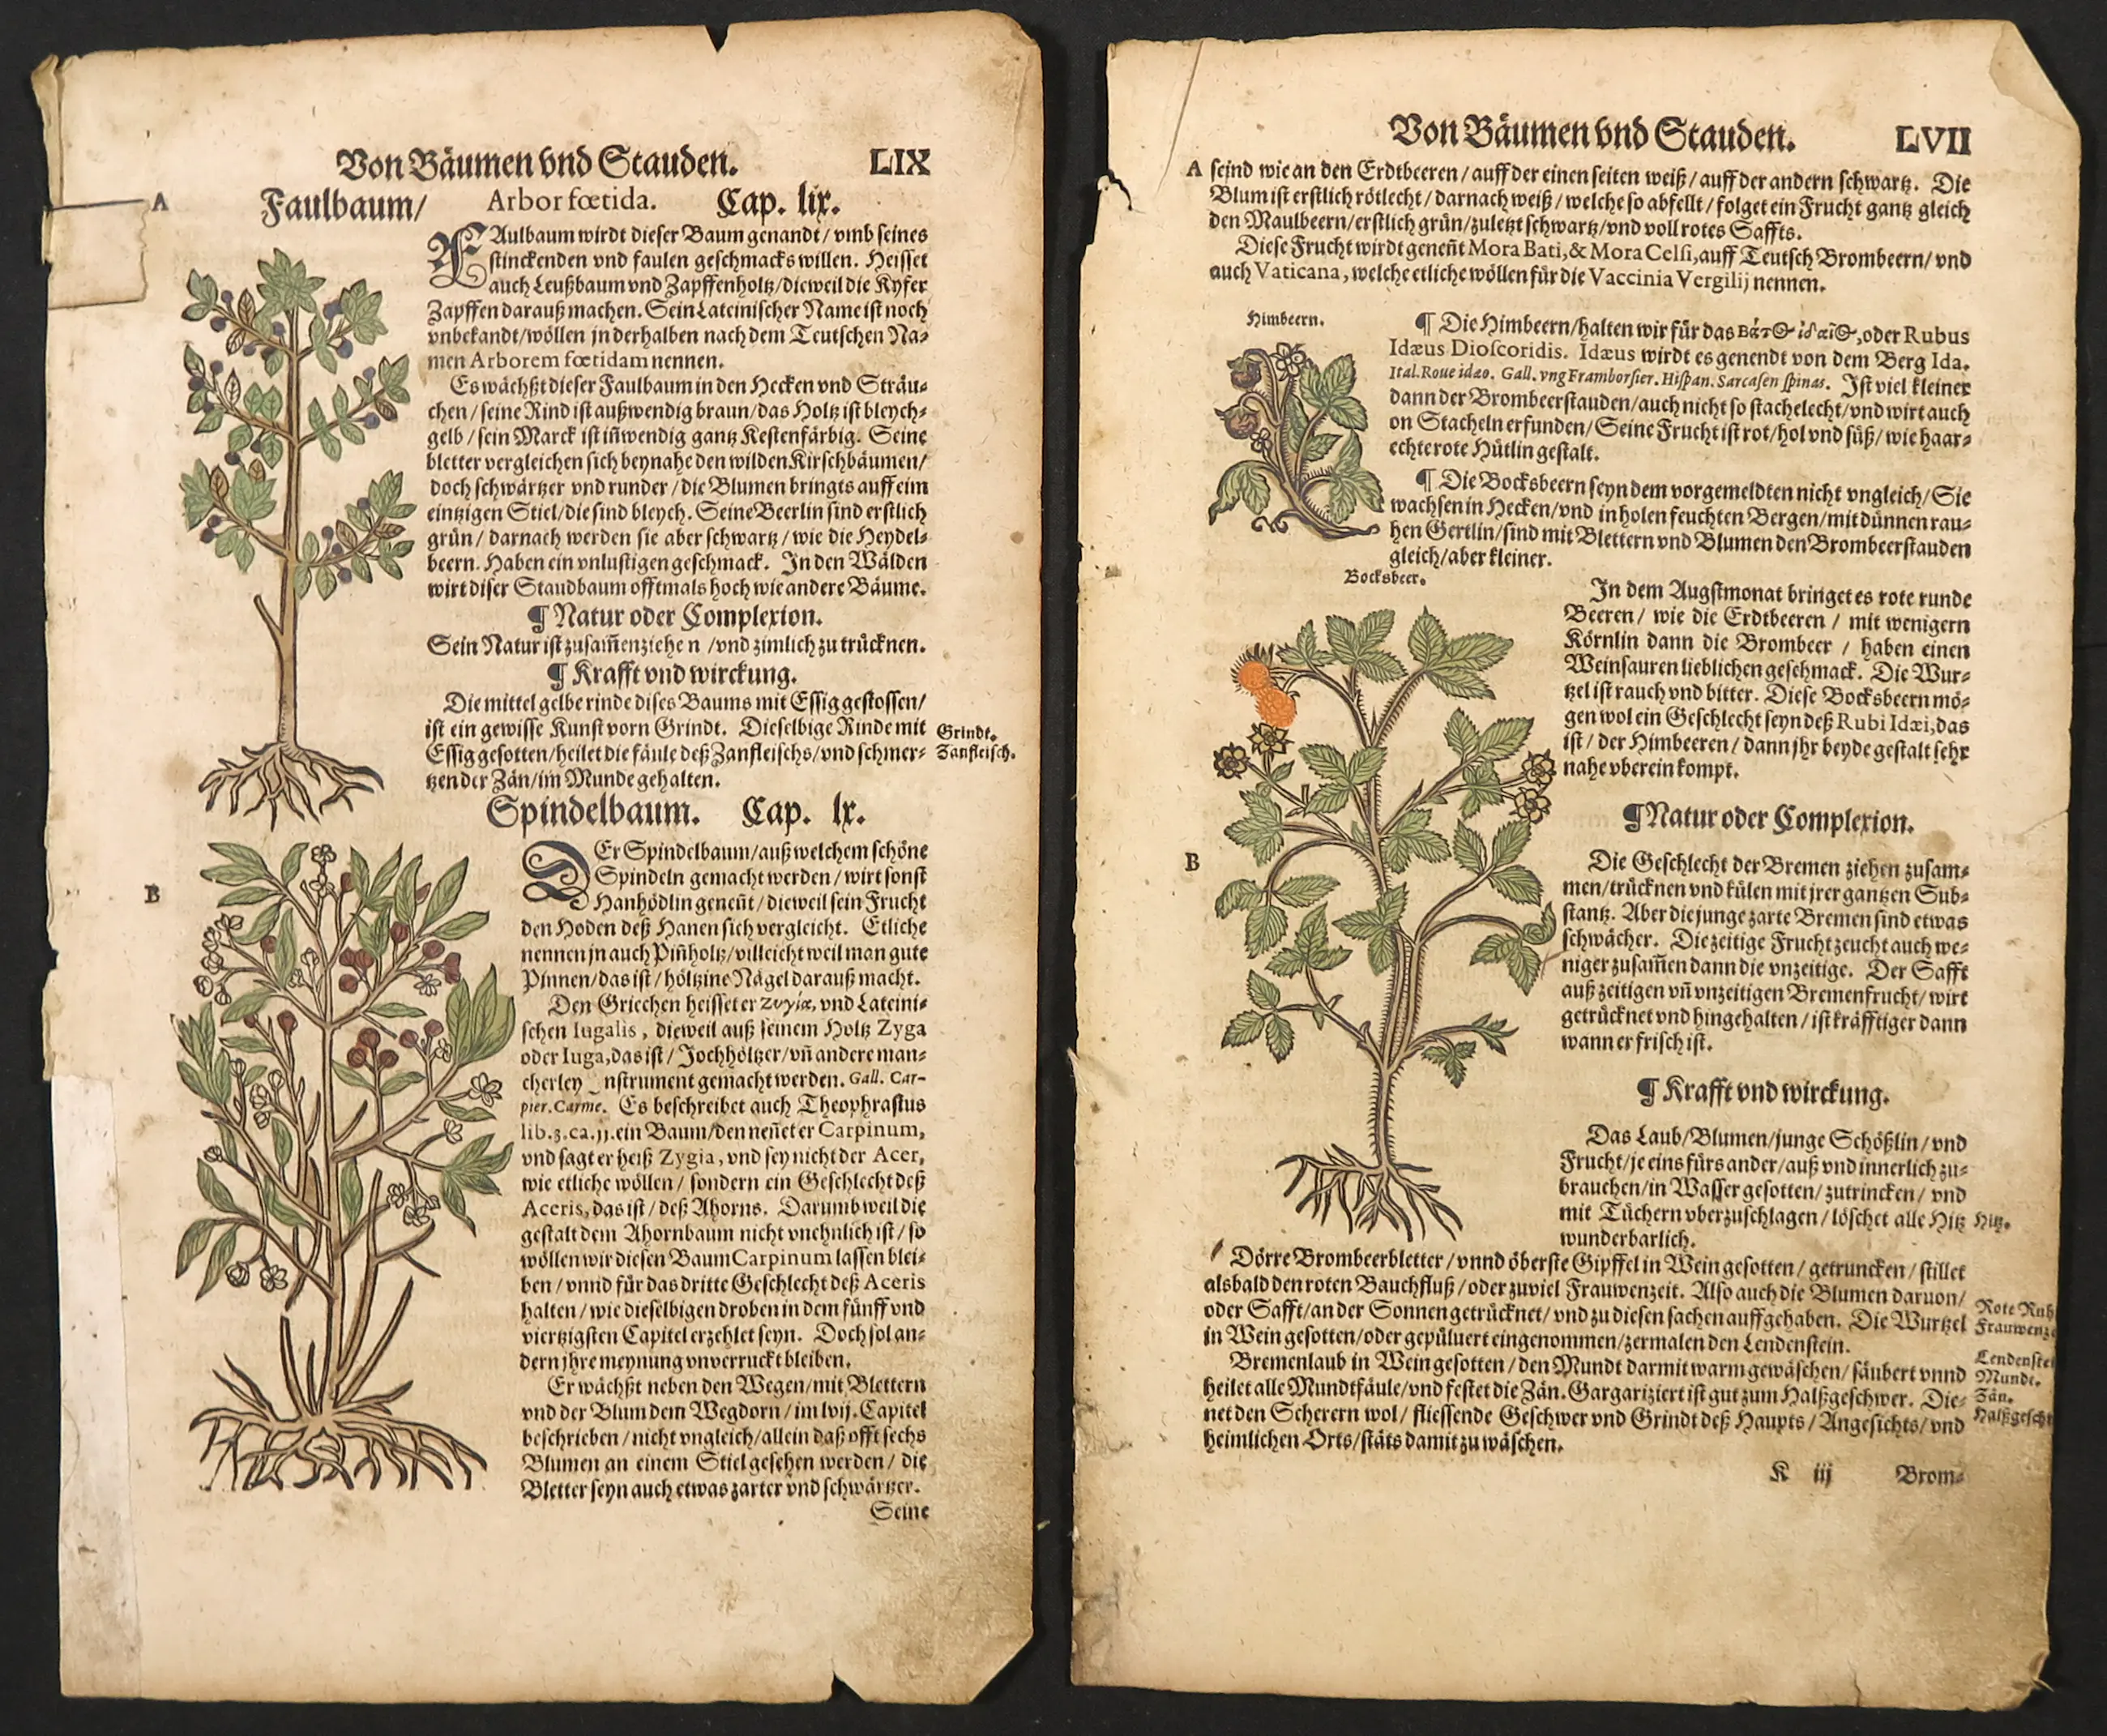 Von Bäumen vnd Stauden. LIX
A
Faulbaum/ Arbor fœtida. Cap. lix.
FAulbaum wirdt dieser Baum genandt/ vmb seines
stinckenden vnd faulen geschmacks willen. Heisset
auch Leußbaum vnd Zapffenholtz/dieweil die Kyfer
Zapffen darauß machen. Sein Lateinischer Name ist noch
vnbekandt/wöllen jn derhalben nach dem Teutschen Na⸗
men Arborem fœtidam nennen.
Es wächßt dieser Faulbaum in den Hecken vnd Sträu⸗
chen/seine Rind ist außwendig braun/das Holtz ist bleych⸗
gelb/sein Marck ist iñwendig gantz Kestenfärbig. Seine
bletter vergleichen sich beynahe den wilden Kirschbäumen/
doch schwärtzer vnd runder/die Blumen bringts auff eim
eintzigen Stiel/die sind bleych. Seine Beerlin sind erstlich
grün/ darnach werden sie aber schwartz/wie die Heydel⸗
beern. Haben ein vnlustigen geschmack. In den Wälden
wirt diser Staudbaum offtmals hoch wie andere Bäume.
¶ Natur oder Complexion.
Sein Natur ist zusam̃enziehe n /vnd zimlich zu trücknen.
¶ Krafft vnd wirckung.
Die mittel gelbe rinde dises Baums mit Essig gestossen/
ist ein gewisse Kunst vorn Grindt. Dieselbige Rinde mit
Essig gesotten/heilet die fäule deß Zanfleischs/vnd schmer⸗
tzen der Zän/im Munde gehalten.
Grindt.
Zanfleisch.
Spindelbaum. Cap. lx.
B
DEr Spindelbaum/auß welchem schöne
Spindeln gemacht werden/ wirt sonst
Hanhödlin geneñt/dieweil sein Frucht
den Hoden deß Hanen sich vergleicht. Etliche
nennen jn auch Piñholtz/villeicht weil man gute
Pinnen/das ist/höltzine Nägel darauß macht.
Den Griechen heisset er ζυγία, vnd Lateini⸗
schen Iugalis, dieweil auß seinem Holtz Zyga
oder Iuga, das ist/ Jochhöltzer/vñ andere man⸗
cherley nstrument gemacht werden. Gall. Car-
pier. Carme. Es beschreibet auch Theophrastus
lib.3.ca.11.ein Baum/den neñet er Carpinum,
vnd sagt er heiß Zygia, vnd sey nicht der Acer,
wie etliche wöllen/ sondern ein Geschlecht deß
Aceris, das ist/ deß Ahorns. Darumb weil die
gestalt dem Ahornbaum nicht vnehnlich ist/ so
wöllen wir diesen Baum Carpinum lassen blei⸗
ben/vnnd für das dritte Geschlecht deß Aceris
halten/wie dieselbigen droben in dem fünff vnd
viertzigsten Capitel erzehlet seyn. Doch sol an⸗
dern jhre meynung vnverruckt bleiben.
Er wächßt neben den Wegen/mit Blettern
vnd der Blum dem Wegdorn/im lvij. Capitel
beschrieben/nicht vngleich/allein daß offt sechs
Blumen an einem Stiel gesehen werden/ die
Bletter seyn auch etwas zarter vnd schwärtzer.
Seine
Von Bäumen vnd Stauden. LVII
A seind wie an den Erdtbeeren/auff der einen seiten weiß/auff der andern schwartz. Die
Blum ist erstlich rötlecht/darnach weiß/welche so abfellt/folget ein Frucht gantz gleich
den Maulbeern/erstlich grün/zuletzt schwartz/vnd voll rotes Saffts.
Diese Frucht wirdt geneñt Mora Bati, & Mora Celsi, auff Teutsch Brombeern/vnd
auch Vaticana, welche etliche wöllen für die Vaccinia Vergilij nennen.
Himbeern.
¶ Die Himbeern/halten wir für das Βάτος ἰδαῖος, oder Rubus
Idæus Dioscoridis. Idæus wirdt es genendt von dem Berg Ida.
Ital. Roue idæo. Gall. vng Framborsier. Hispan. Sarcasen spinas. Ist viel kleiner
dann der Brombeerstauden/auch nicht so stachelecht/vnd wirt auch
on Stacheln erfunden/Seine Frucht ist rot/hol vnd süß/wie haar⸗
echte rote Hütlin gestalt.
¶ Die Bocksbeern seyn dem vorgemeldten nicht vngleich/Sie
wachsen in Hecken/vnd in holen feuchten Bergen/mit dünnen rau⸗
hen Gertlin/sind mit Blettern vnd Blumen den Brombeerstauden
gleich/aber kleiner.
Bocksbeer.
In dem Augstmonat bringet es rote runde
Beeren/ wie die Erdtbeeren/ mit wenigern
Körnlin dann die Brombeer/ haben einen
Weinsauren lieblichen geschmack. Die Wur⸗
tzel ist rauch vnd bitter. Diese Bocksbeern mö⸗
gen wol ein Geschlecht seyn deß Rubi Idæi, das
ist/ der Himbeeren/dann jhr beyde gestalt sehr
nahe vberein kompt.
¶ Natur oder Complexion.
B
Die Geschlecht der Bremen ziehen zusam⸗
men/trücknen vnd külen mit jrer gantzen Sub⸗
stantz. Aber die junge zarte Bremen sind etwas
schwächer. Die zeitige Frucht zeucht auch we⸗
niger zusam̃en dann die vnzeitige. Der Safft
auß zeitigen vñ vnzeitigen Bremenfrucht/wirt
getrücknet vnd hingehalten/ist kräfftiger dann
wann er frisch ist.
¶ Krafft vnd wirckung.
Das Laub/Blumen/junge Schößlin/vnd
Frucht/je eins fürs ander/auß vnd innerlich zu⸗
brauchen/in Wasser gesotten/zutrincken/ vnd
mit Tüchern vberzuschlagen/löschet alle Hitz
wunderbarlich.
Hitz.
Dörre Brombeerbletter/vnnd öberste Gipffel in Wein gesotten/getruncken/stillet
alsbald den roten Bauchfluß/oder zuviel Frauwenzeit. Also auch die Blumen daruon/
oder Safft/an der Sonnen getrücknet/vnd zu diesen sachen auffgehaben. Die Wurtzel
in Wein gesotten/oder gepüluert eingenommen/zermalen den Lendenstein.
Rote Ruh
Frauwenze
Bremenlaub in Wein gesotten/den Mundt darmit warm gewäschen/säubert vnnd
heilet alle Mundtfäule/vnd festet die Zän. Gargariziert ist gut zum Halßgeschwer. Die⸗
net den Scherern wol/ fliessende Geschwer vnd Grindt deß Haupts/Angesichts/vnd
heimlichen Orts/stäts damit zu wäschen.
Lendenstei
Mundt.
Zän.
Halßgeschw
K iij Brom⸗